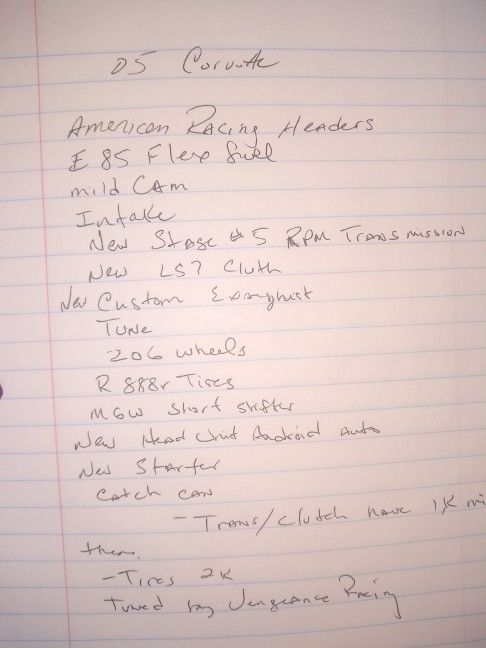 05 Corvette
American Racing Headers
E 85 Flex fuel
mild CAm
Intake
New Stage #5 RPM Transmission
New LS7 Cluth
New Custom Exanghust
Tune
206 wheels
R 888r Tires
MGW Short shifter
New Head Unit Android Auto
New Starter
Catch can
- Trans/Clutch have 1K mi
them.
- Tires 2K
Tuned by Vengeance Racing